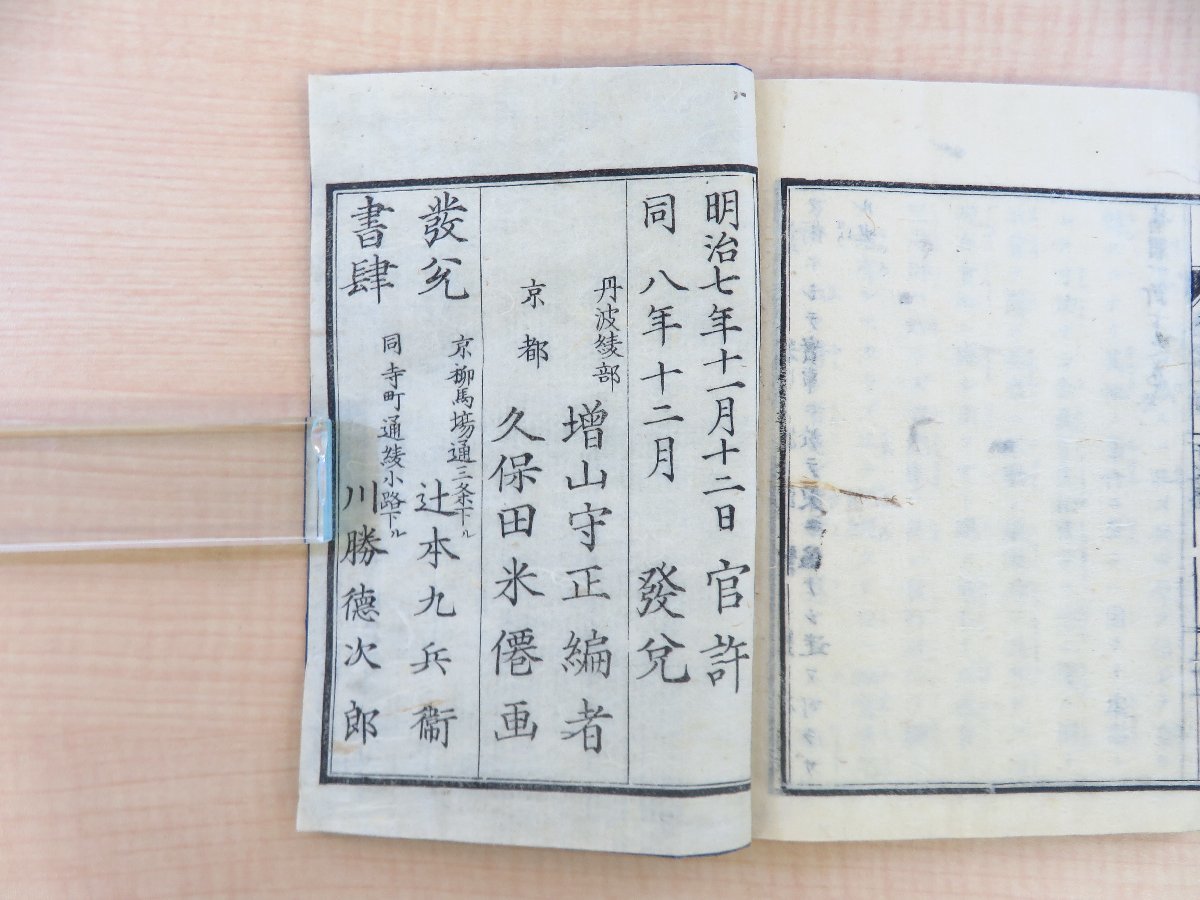 明治七年十一月十二日 官許
同 八年十二月 發兌
丹波綾部 増山守正編者
京都 久保田米僊画
發兌
書肆
京柳馬場通三条下ル 辻本九兵衞
同寺町通綾小路下ル 川勝德次郎